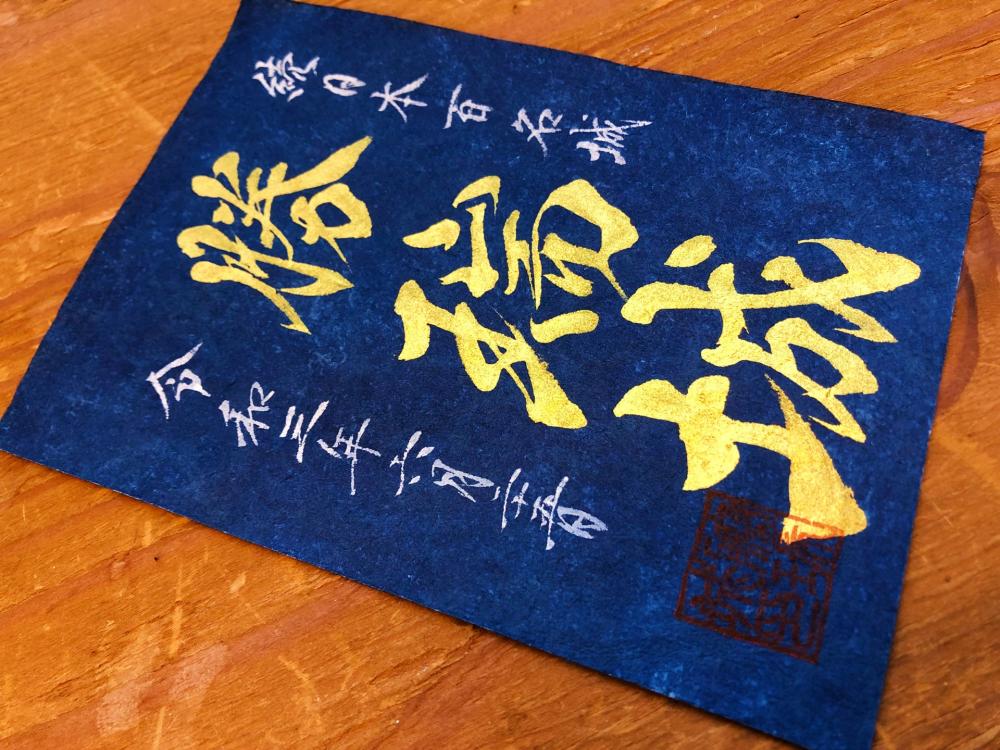 続日本百名城
勝瑞城
令和三年六月二十五日